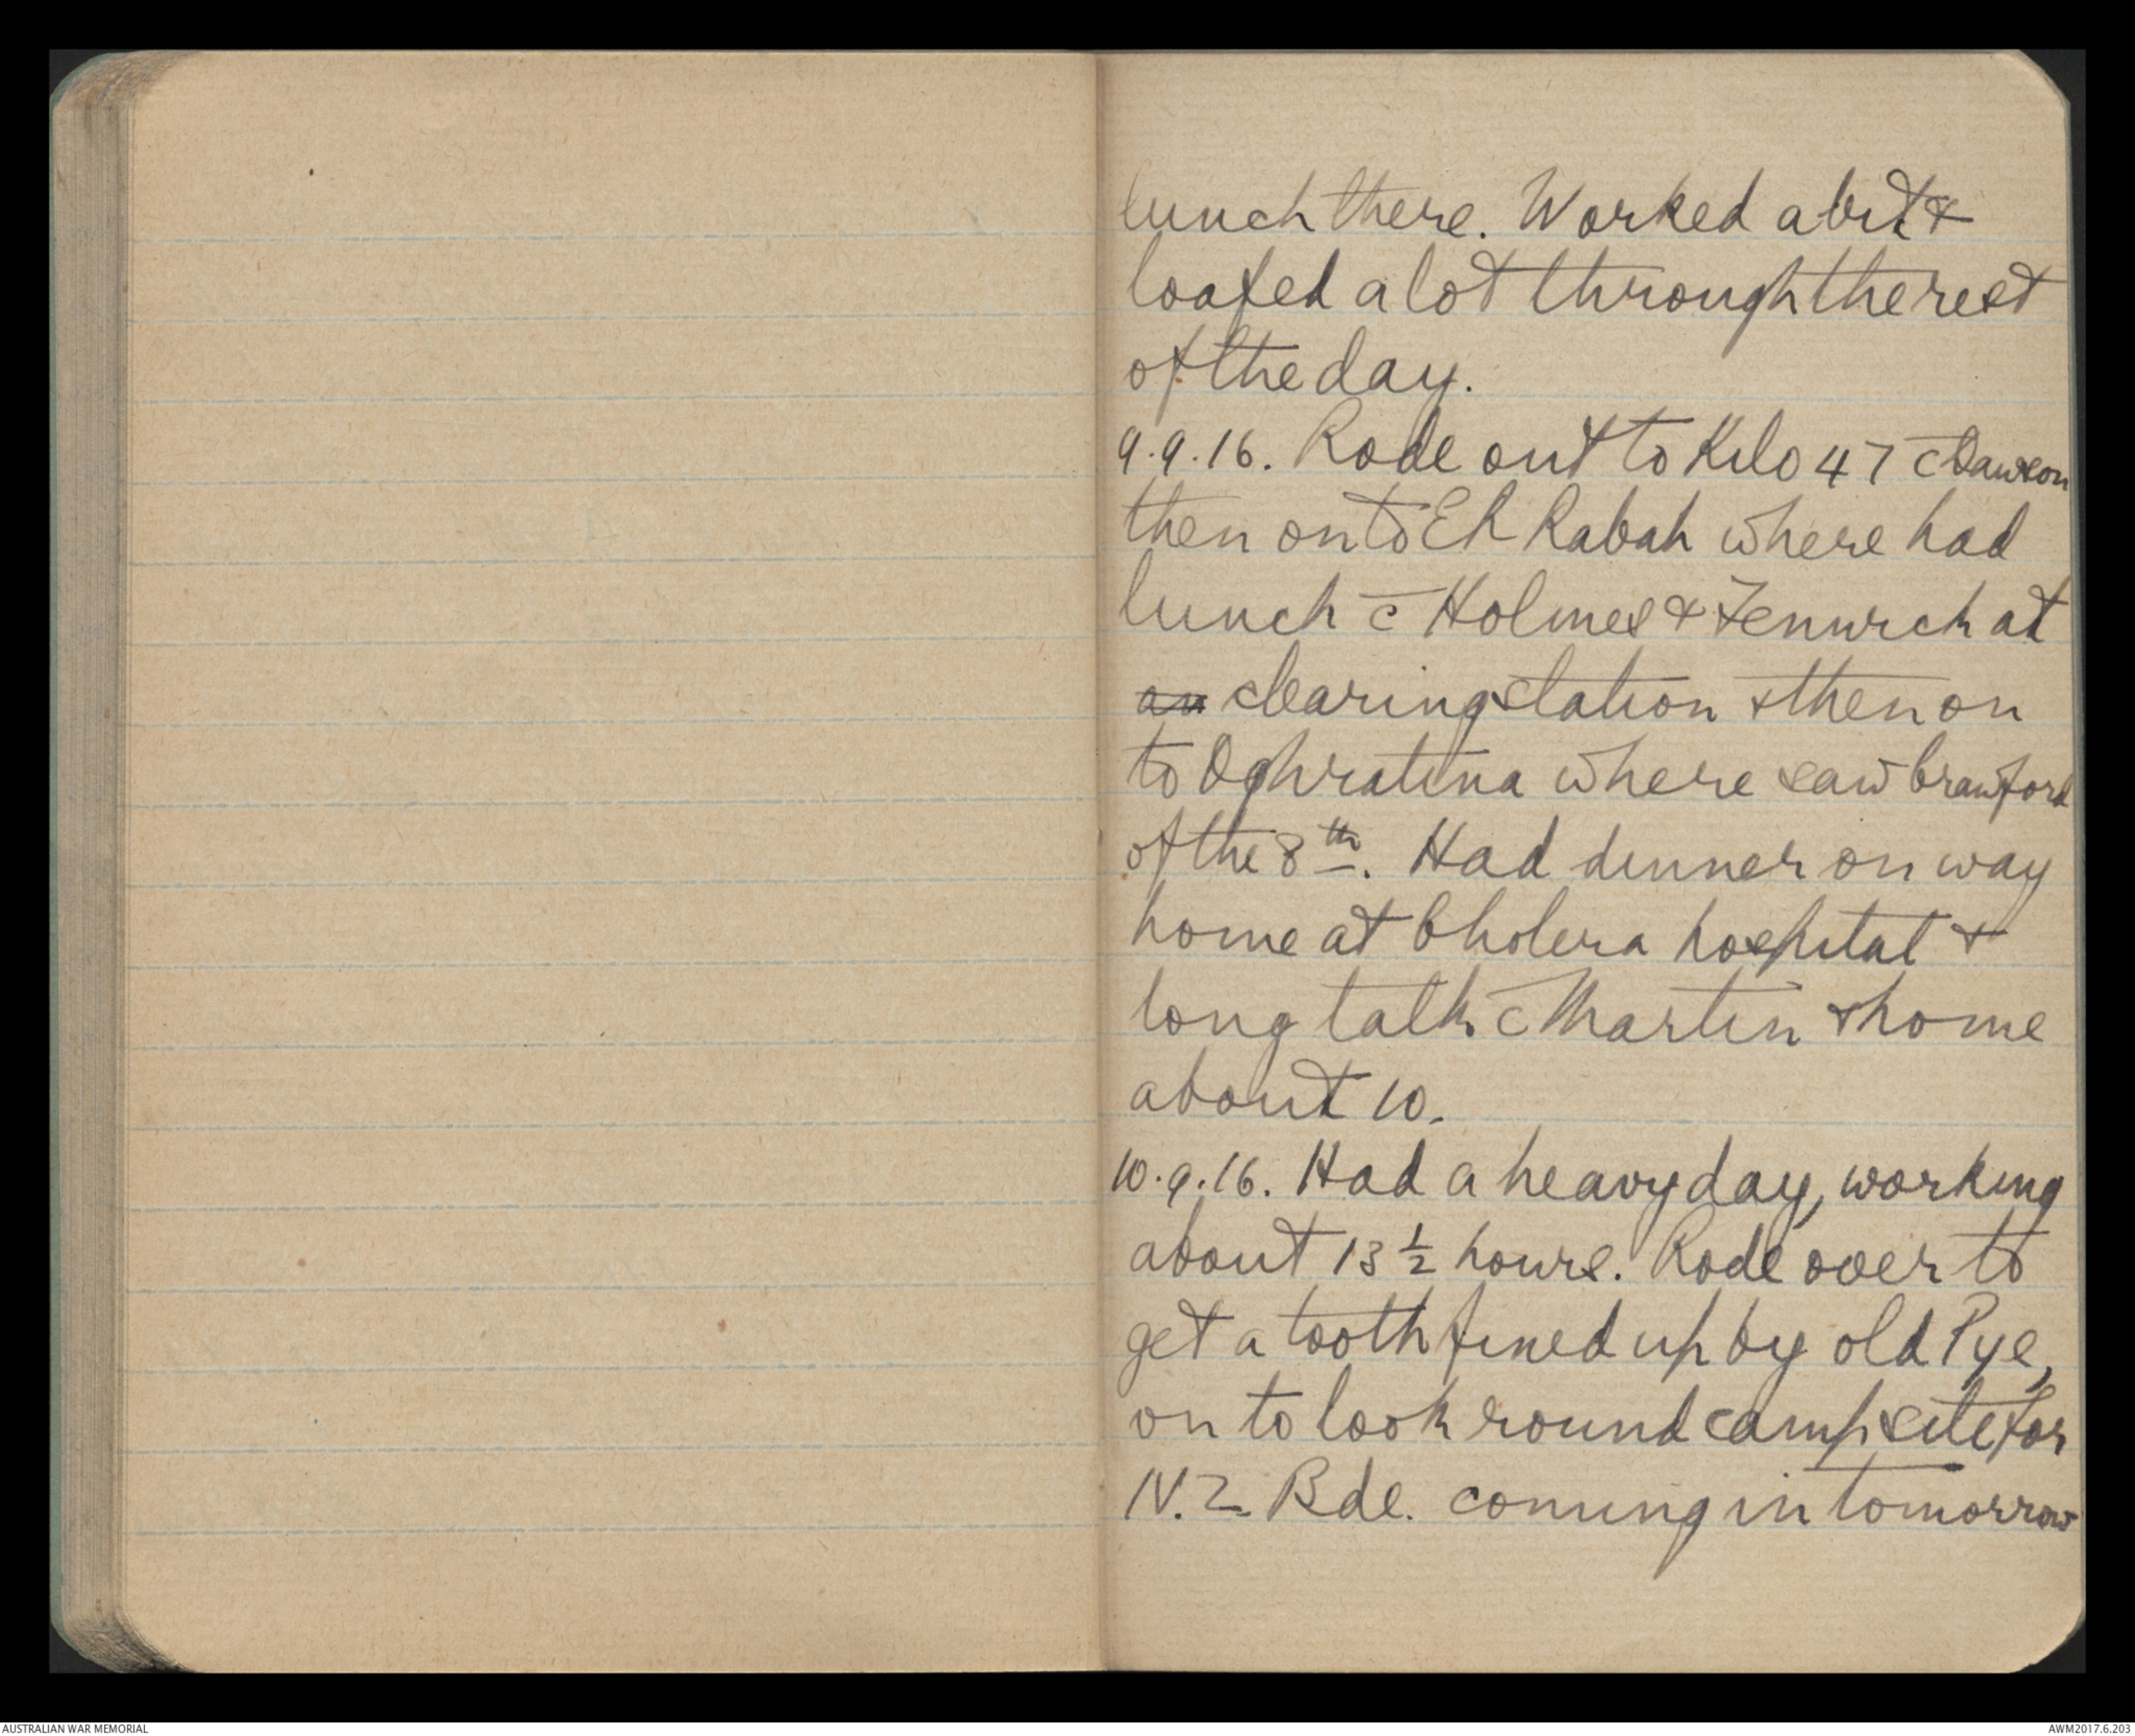 lunch there. Worked a bit &
loafed a lot through the rest
of the day.
9.9.16. Rode out to Kilo 47 c̄ Dawson
then on to Er Rabah where had
lunch c̄ Holmes & Fenwick at
an clearing station & then on
to Oghratina where saw Crawford
of the 8th. Had dinner on way
home at Cholera hospital &
long talk c̄ Martin & home
about 10.
10.9.16. Had a heavy day, working
about 13 ½ hours. Rode over to
get a tooth fixed up by old Pye,
on to look round camp site for
N.Z. Bde. coming in tomorrow
AUSTRALIAN WAR MEMORIAL
AWM2017.6.203